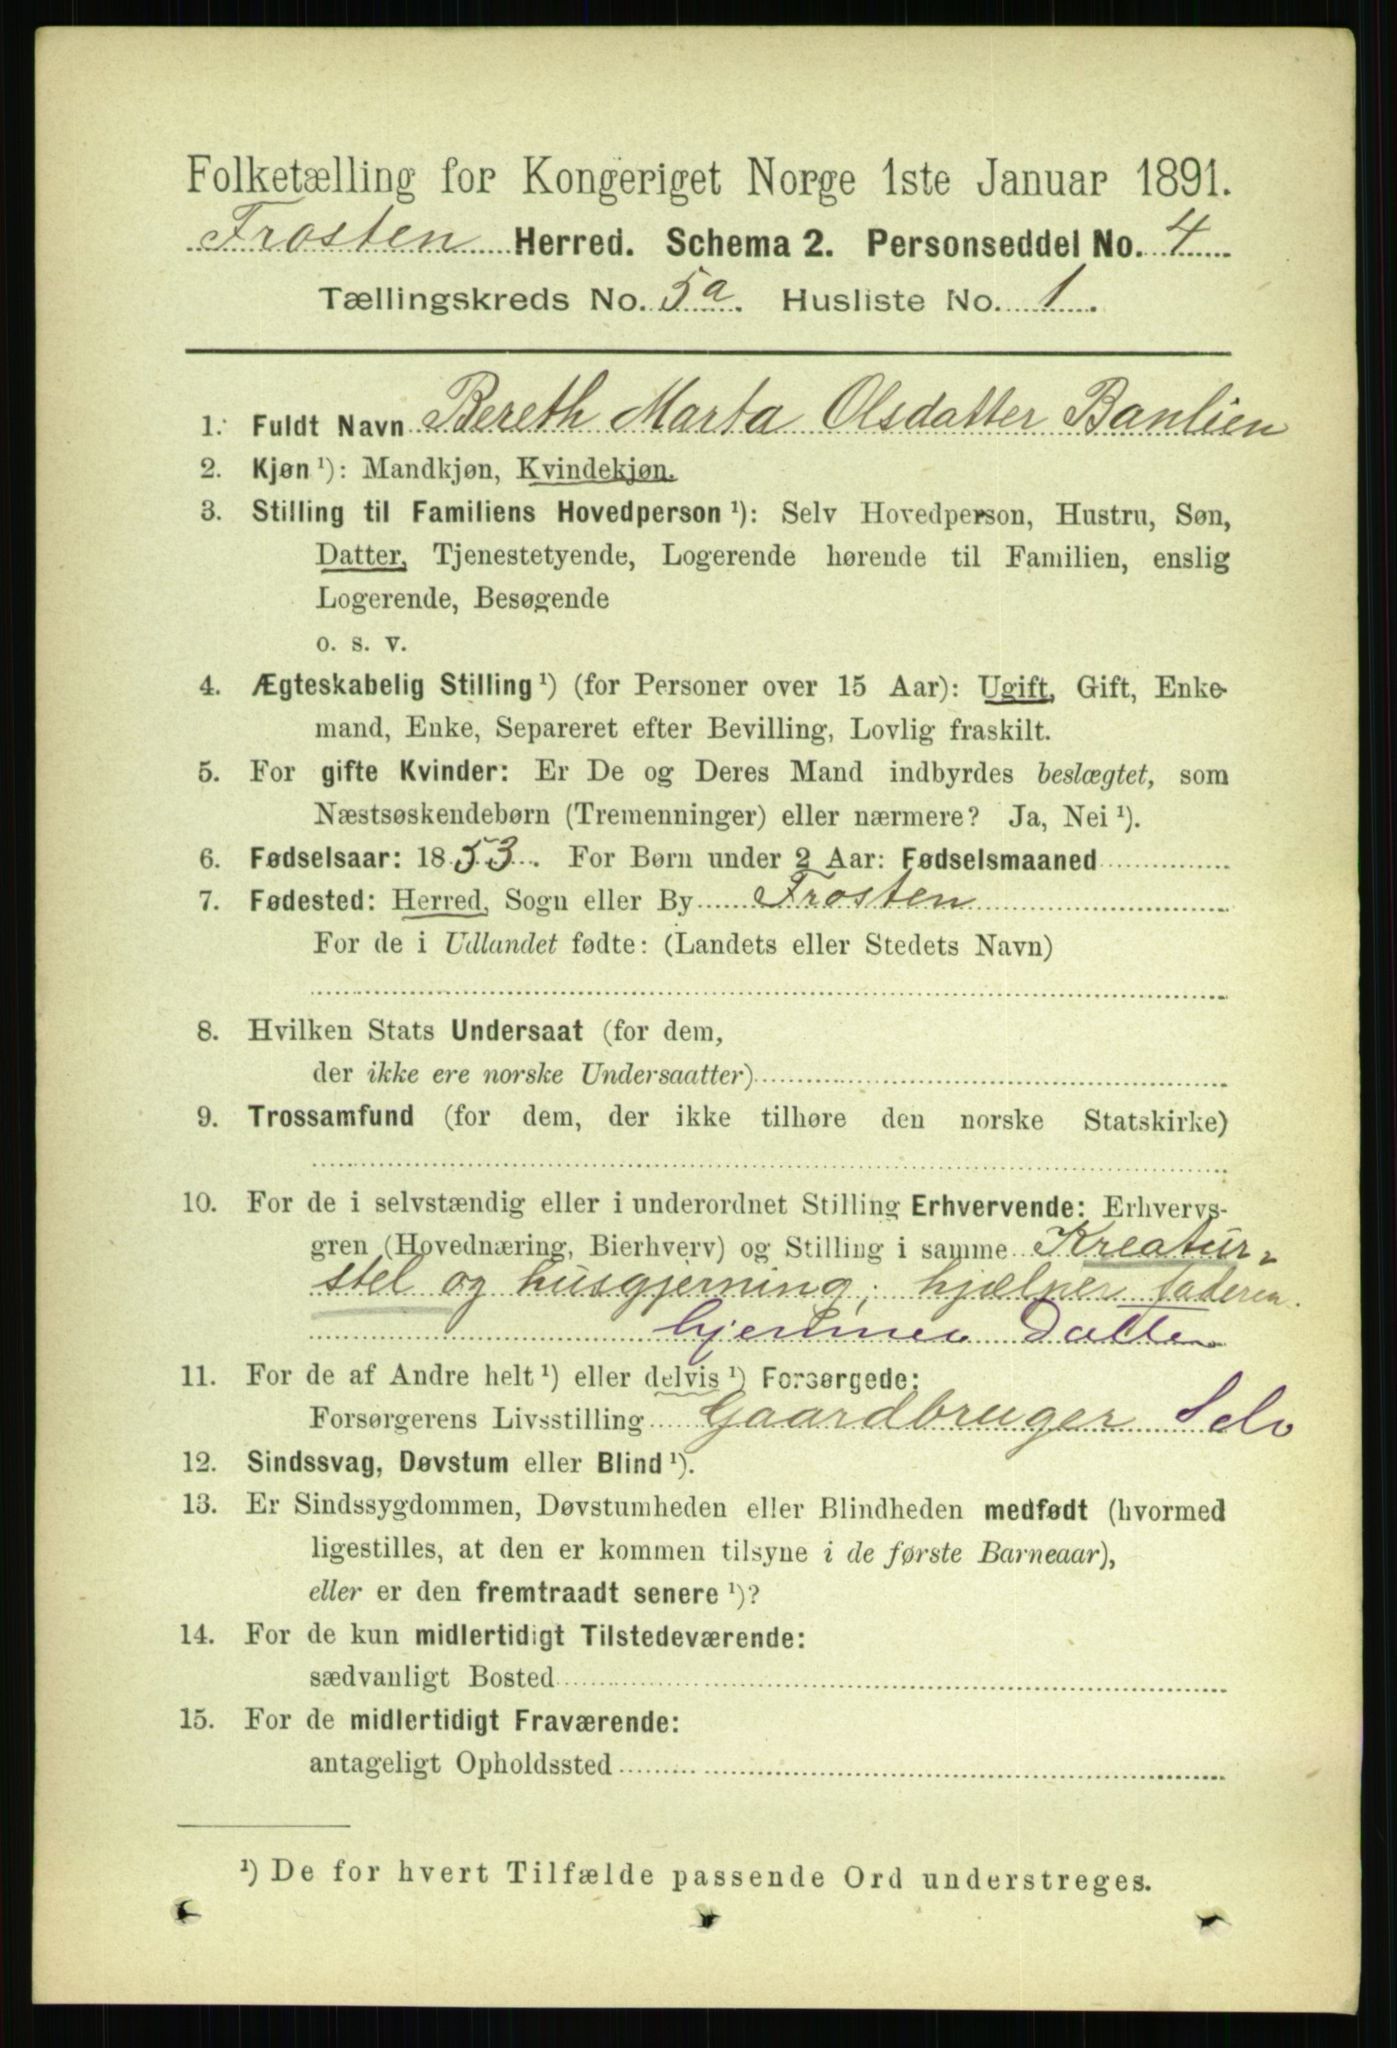 Folketælling for Kongeriget Norge 1ste Januar 1891.
Frosten Herred. Schema 2. Personseddel No. 4
Tællingskreds No. 5a. Husliste No. 1.
1. Fuldt Navn Bereth Marta Olsdatter Banlien
2. Kjøn ¹): Mandkjøn, Kvindekjøn.
3. Stilling til Familiens Hovedperson ¹): Selv Hovedperson, Hustru, Søn,
Datter, Tjenestetyende, Logerende hørende til Familien, enslig
Logerende, Besøgende
o. s. v.
4. Ægteskabelig Stilling ¹) (for Personer over 15 Aar): Ugift, Gift, Enke-
mand, Enke, Separeret efter Bevilling, Lovlig fraskilt.
5. For gifte Kvinder: Er De og Deres Mand indbyrdes beslægtet, som
Næstsøskendebørn (Tremenninger) eller nærmere? Ja, Nei ¹).
6. Fødselsaar: 1853. For Børn under 2 Aar: Fødselsmaaned
7. Fødested: Herred, Sogn eller By Frosten
For de i Udlandet fødte: (Landets eller Stedets Navn)
8. Hvilken Stats Undersaat (for dem,
der ikke ere norske Undersaatter)
9. Trossamfund (for dem, der ikke tilhøre den norske Statskirke)
10. For de i selvstændig eller i underordnet Stilling Erhvervende: Erhvervs-
gren (Hovednæring, Bierhverv) og Stilling i samme Kreatur-
stel og husgjerning; hjælper faderen.
hjemmev Datter
11. For de af Andre helt ¹) eller delvis ¹) Forsørgede:
Forsørgerens Livsstilling Gaardbruger Selv
12. Sindssvag, Døvstum eller Blind ¹).
13. Er Sindssygdommen, Døvstumheden eller Blindheden medfødt (hvormed
ligestilles, at den er kommen tilsyne i de første Barneaar),
eller er den fremtraadt senere ¹)?
14. For de kun midlertidigt Tilstedeværende:
sædvanligt Bosted
15. For de midlertidigt Fraværende:
antageligt Opholdssted
¹) De for hvert Tilfælde passende Ord understreges.